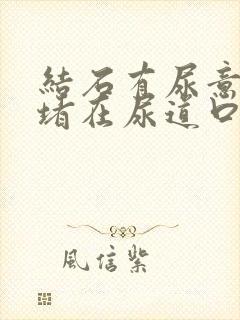 結石有尿意
堵在尿道口
風信紫